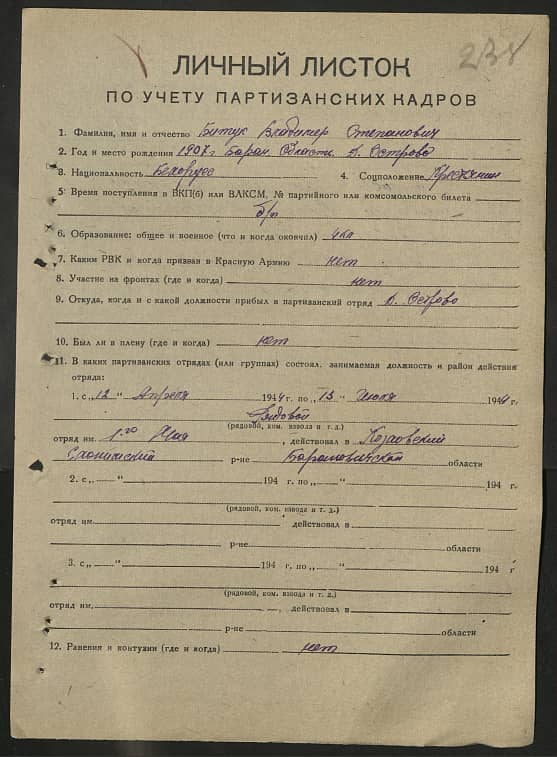 238
ЛИЧНЫЙ ЛИСТОК
ПО УЧЕТУ ПАРТИЗАНСКИХ КАДРОВ
1. Фамилия, имя и отчество Битук Владимер Степанович
2. Год и место рождения 1907 г Баран. Области д. Острово
3. Национальность Белорус 4. Соцположение Крестянин
5. Время поступления в ВКП(б) или ВЛКСМ, № партийного или комсомольского билета
б/п
6. Образование: общее и военное (что и когда окончил) 4 кл
7. Каким РВК и когда призван в Красную Армию нет
8. Участие на фронтах (где и когда) нет
9. Откуда, когда и с какой должности прибыл в партизанский отряд д. Острово
10. Был ли в плену (где и когда) нет
11. В каких партизанских отрядах (или группах) состоял, занимаемая должность и район действия
отряда:
1. с „12 " Апреля 1944 г. по „13 " Июля 1944 г.
Рядовой
(рядовой, ком. взвода и т. д.)
отряд им. 1го Мая, действовал в Козловский
Слонимский р-не Барановитской области
2. с „ " 194 г. по „ " 194 г.
(рядовой, ком. взвода и т. д.)
отряд им. действовал в
р-не области
3. с „ " 194 г. по „ " 194 г
(рядовой, ком. взвода и т. д.)
отряд им. , действовал в
р-не области
12. Ранения и контузии (где и когда) нет